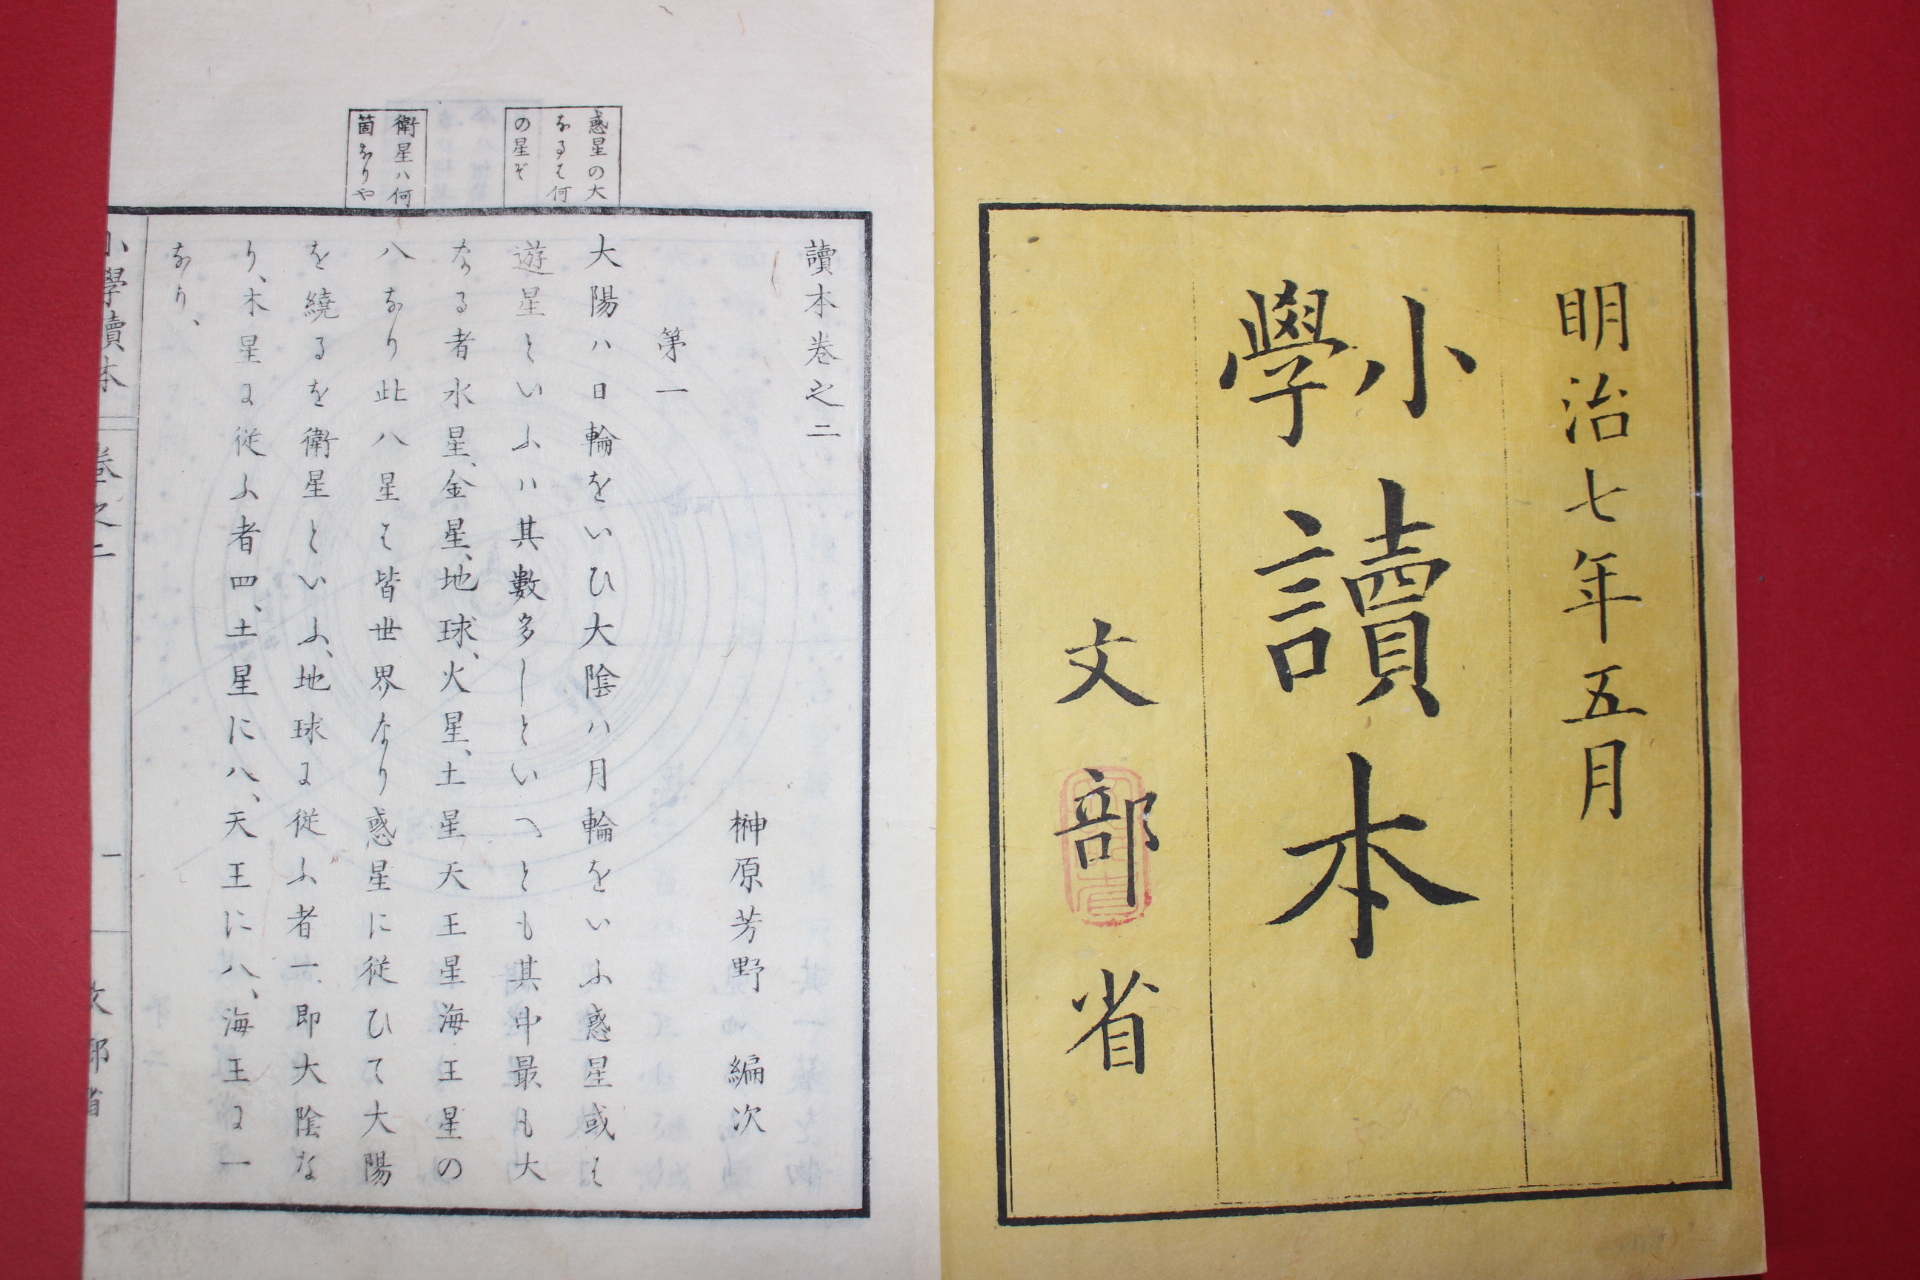 明治七年五月
小學讀本
文部省
讀本卷之二
榊原芳野 編次
第一
惑星の大
なるは何
の星ぞ
衛星ハ何
箇ありや
大陽ハ日輪をいひ大陰ハ月輪をいふ惑星或は
遊星といふハ其數多しといへとも其中最も大
なる者水星、金星、地球、火星、土星天王星海王星の
八なり此八星は皆世界なり惑星に従ひて大陽
を繞るを衛星といふ、地球に従ふ者一、即大陰な
り、木星に従ふ者四、土星に八、天王に八、海王に一
なり、
小學讀本 卷之二 一 文部省